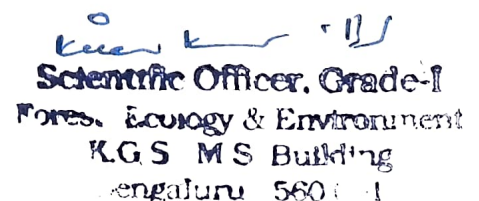 Scientific Officer, Grade-I
Fores. Ecology & Environment
K.G S M S Building
engaluru 560